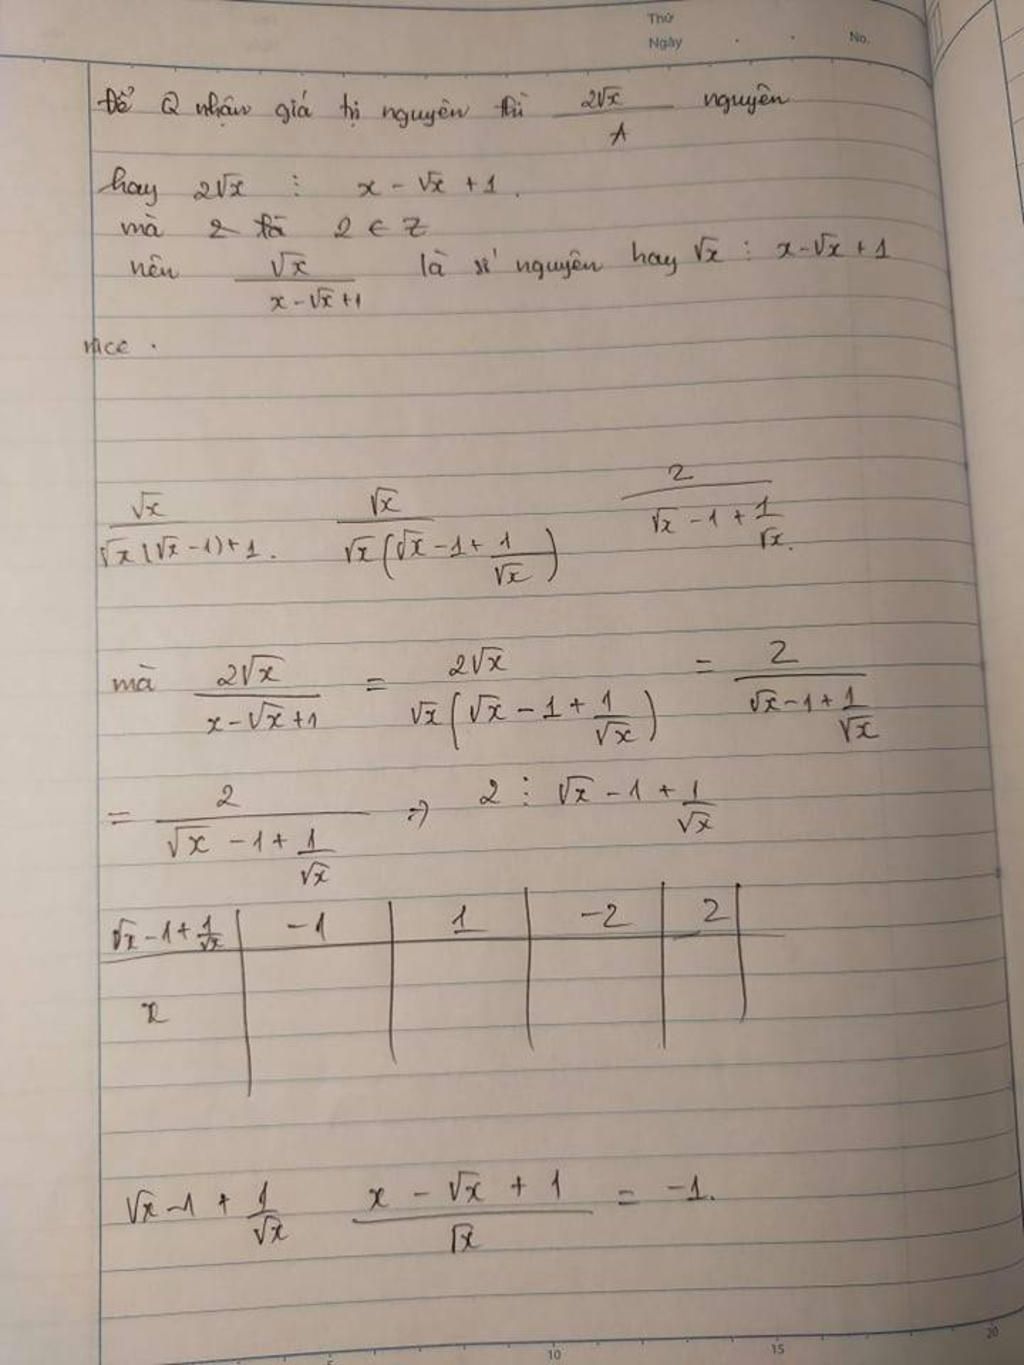 Thứ
Ngày . . No.
Để Q nhận giá trị nguyên thì 2√x / A nguyên
hay 2√x ⋮ x - √x + 1.
mà 2 là 2 ∈ Z
nên √x / (x - √x + 1) là số nguyên hay √x ⋮ x - √x + 1
√x / (√x(√x - 1) + 1). √x / (√x(√x - 1 + 1/√x)) 2 / (√x - 1 + 1/√x).
mà 2√x / (x - √x + 1) = 2√x / (√x(√x - 1 + 1/√x)) = 2 / (√x - 1 + 1/√x)
= 2 / (√x - 1 + 1/√x) => 2 ⋮ √x - 1 + 1/√x
√x - 1 + 1/√x | -1 | 1 | -2 | 2 |
x
√x - 1 + 1/√x (x - √x + 1) / √x = -1.
10 15 20